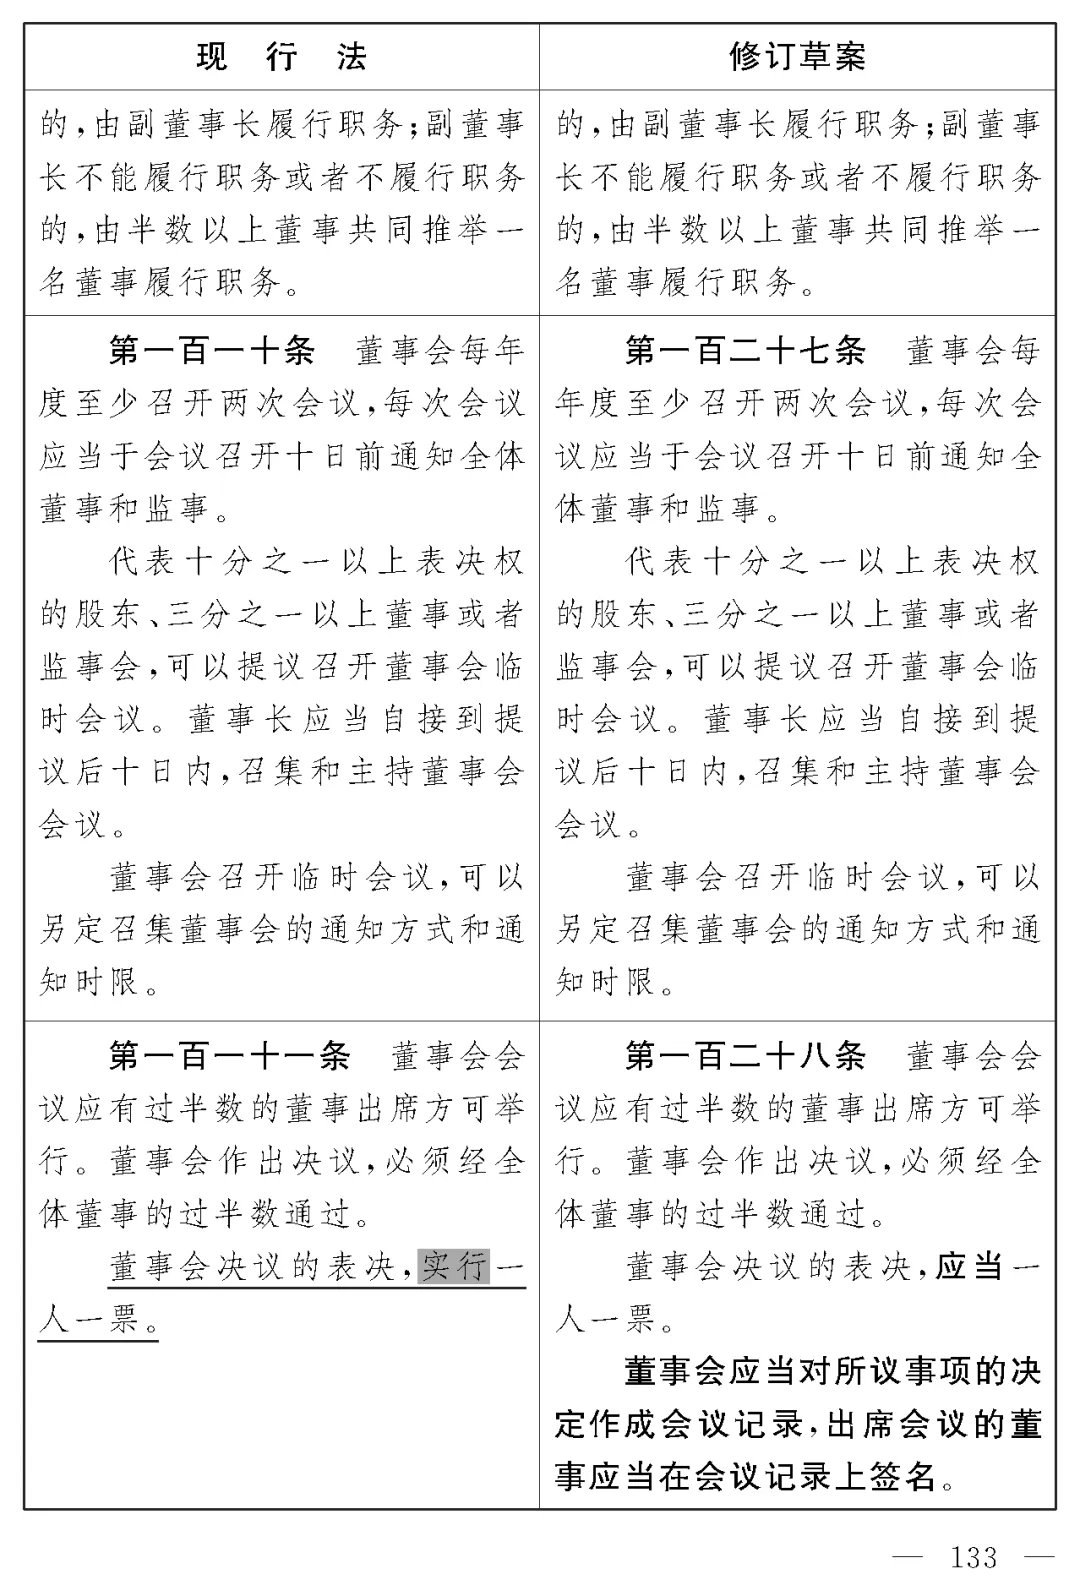 现 行 法
的,由副董事长履行职务;副董事
长不能履行职务或者不履行职务
的,由半数以上董事共同推举一
名董事履行职务。
第一百一十条 董事会每年
度至少召开两次会议,每次会议
应当于会议召开十日前通知全体
董事和监事。
代表十分之一以上表决权
的股东、三分之一以上董事或者
监事会,可以提议召开董事会临
时会议。董事长应当自接到提
议后十日内,召集和主持董事会
会议。
董事会召开临时会议,可以
另定召集董事会的通知方式和通
知时限。
第一百一十一条 董事会会
议应有过半数的董事出席方可举
行。董事会作出决议,必须经全
体董事的过半数通过。
董事会决议的表决,实行一
人一票。
修订草案
的,由副董事长履行职务;副董事
长不能履行职务或者不履行职务
的,由半数以上董事共同推举一
名董事履行职务。
第一百二十七条 董事会每
年度至少召开两次会议,每次会
议应当于会议召开十日前通知全
体董事和监事。
代表十分之一以上表决权
的股东、三分之一以上董事或者
监事会,可以提议召开董事会临
时会议。董事长应当自接到提
议后十日内,召集和主持董事会
会议。
董事会召开临时会议,可以
另定召集董事会的通知方式和通
知时限。
第一百二十八条 董事会会
议应有过半数的董事出席方可举
行。董事会作出决议,必须经全
体董事的过半数通过。
董事会决议的表决,应当一
人一票。
董事会应当对所议事项的决
定作成会议记录,出席会议的董
事应当在会议记录上签名。
— 133 —